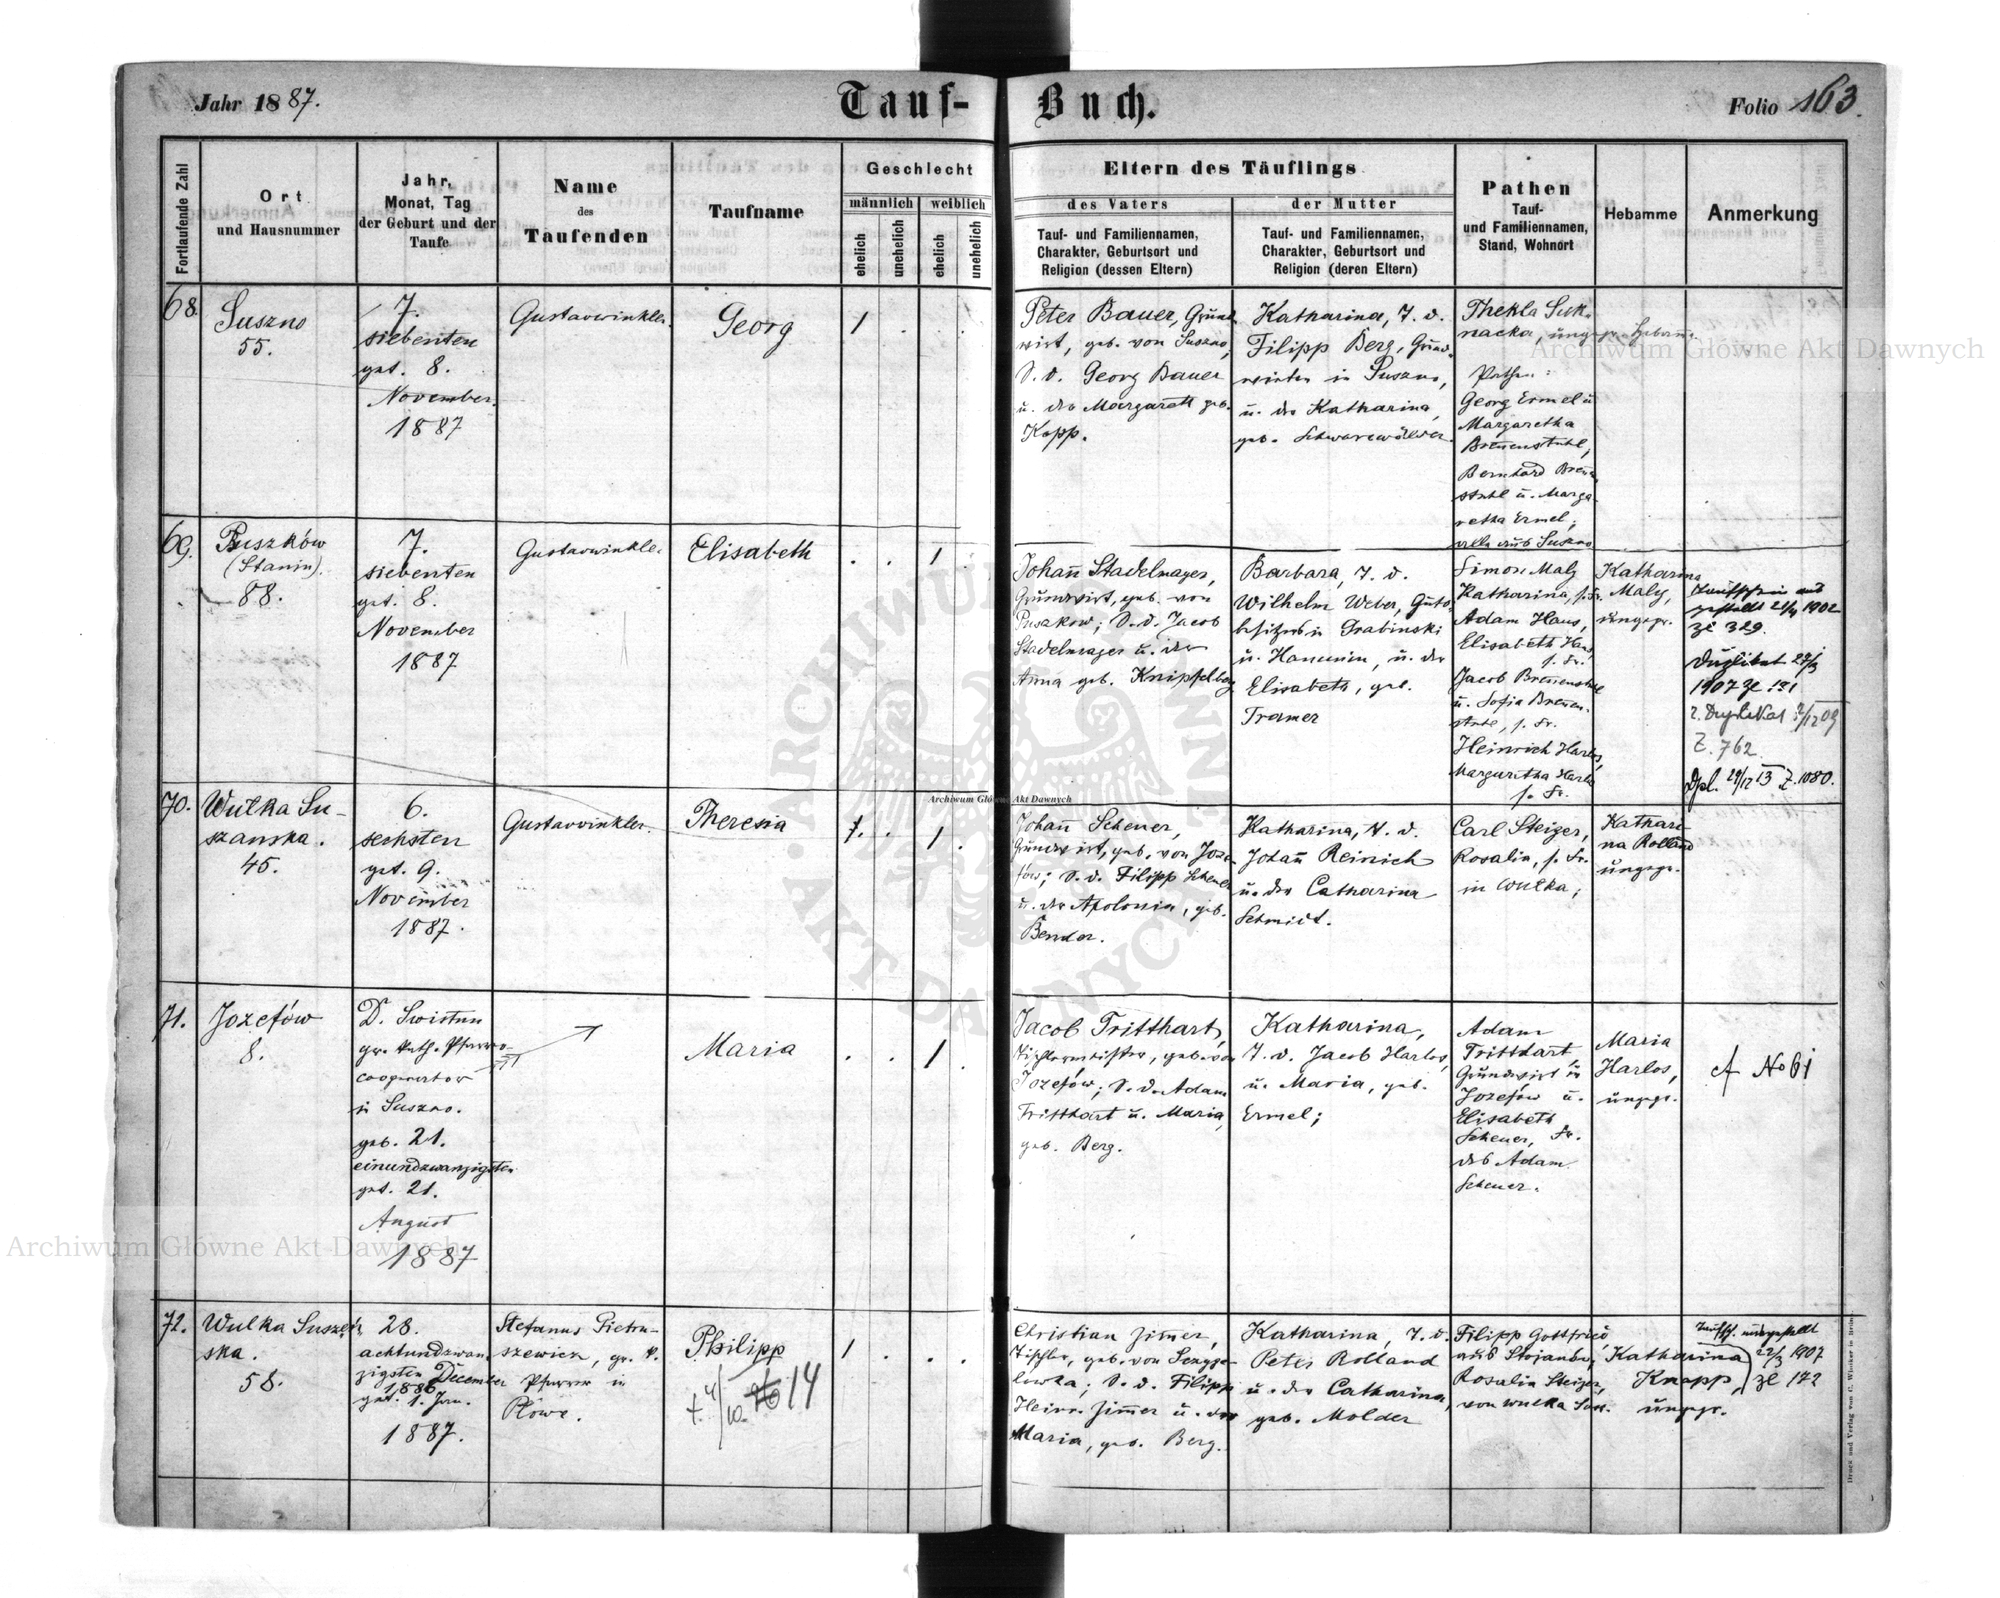 Jahr 1887.
Tauf-Buch.
Folio 163.
Fortlaufende Zahl
Ort
und Hausnummer
Jahr,
Monat, Tag
der Geburt und der
Taufe
Name
des
Taufenden
Taufname
Geschlecht
männlich
weiblich
ehelich
unehelich
ehelich
unehelich
Eltern des Täuflings
des Vaters
Tauf- und Familiennamen,
Charakter, Geburtsort und
Religion (dessen Eltern)
der Mutter
Tauf- und Familiennamen,
Charakter, Geburtsort und
Religion (deren Eltern)
Pathen
Tauf-
und Familiennamen,
Stand, Wohnort
Hebamme
Anmerkung
68.
Suszno
55.
7.
siebenten
get. 8.
November.
1887
Gustavwinkler.
Georg
1 . . .
Peter Bauer, Grund
wirt, geb. von Suszno,
S. d. Georg Bauer
u. der Margareth geb.
Kopp.
Katharina, T. d.
Filipp Berg, Grund-
wirten in Suszno,
u. der Katharina,
geb. Schwarzwälder.
Thekla Suk-
nacka, ungepr. Hebam̄e
Pathen:
Georg Ermel u
Margaretha
Breñenstuhl,
Bernhard Breñen
stuhl u. Marga
retha Ermel,
alle aus Suszno
69.
Puszków
(Stanin).
88.
7.
siebenten
get. 8.
November
1887
Gustavwinkler
Elisabeth
. . 1 .
Johañ Stadelmayer,
Grundwirt, geb. von
Puszkow; S. d. Jacob
Stadelmayer u. der
Añna geb. Knipfelberg
Barbara, T. d.
Wilhelm Weber, Guts-
besitzers in Grabinski
u. Hanunin, u. der
Elisabeth, geb.
Tramer
Simon Maly
Katharina, s. Fr.
Adam Haus,
Elisabeth Haus,
s. Fr.
Jacob Breñenstuhl
u. Sofia Breñen-
stuhl, s. Fr.
Heinrich Harlos,
Margaretha Harlos
s. Fr.
Katharina
Maly,
ungepr.
Taufschein aus
gestellt 1902
Zl 329.
Duplikat
1907 Zl 191
2. Duplikat 09
Z. 762
Dpl. 29/12 13 Z. 1080.
70.
Wulka Su-
szanska.
45.
6.
sechsten
get. 9.
November
1887.
Gustavwinkler.
Theresia
. 1 .
Johañ Scheuer,
Grundwirt, geb. von Joze-
fów; S. d. Filipp Scheuer
u. der Apolonia, geb.
Bender.
Katharina, T. d.
Johañ Reinich
u. der Catharina
Schmidt.
Carl Steiger,
Rosalia, s. Fr.
in Wulka,
Kathari-
na Rolland
ungepr.
71.
Jozefów
8.
D. Swistun
gr. kath. Pfarr-
cooperator
in Suszno.
geb. 21.
einundzwanzigsten
get. 21.
August
1887
Maria
. . 1 .
Jacob Tritthart,
Tischlermeister, geb. von
Jozefów; S. d. Adam
Tritthart u. Maria,
geb. Berg.
Katharina,
T. d. Jacob Harlos,
u. Maria, geb.
Ermel;
Adam
Tritthart
Grundwirt in
Jozefów u.
Elisabeth
Scheuer, Fr.
des Adam
Scheuer.
Maria
Harlos,
ungepr.
No 61
72.
Wulka Suszań-
ska.
58.
28.
achtundzwan
zigsten December
1886
get. 1. Jan.
1887.
Stefanus Pietru-
szewicz, gr. k.
Pfarrer in
Płowe.
Philipp
14
1 . . .
Christian Zim̄er,
Tischler, geb. von Sczyge-
lowka; S. d. Filipp
Heinr. Zim̄er u. der
Maria, geb. Berg.
Katharina, T. d.
Peter Rolland
u. der Catharina,
geb. Molder
Filipp Gottfried
aus Stojanów,
Rosalia Steiger,
von Wulka Susz.
Katharina
Knopp,
ungepr.
Taufsch. ausgestellt
22/3 1907
Zl 172
Druck und Verlag von C. Winiker in Brünn.
Archiwum Główne Akt Dawnych
Archiwum Główne Akt Dawnych
Archiwum Główne Akt Dawnych
ARCHIWUM GŁÓWNE AKT DAWNYCH